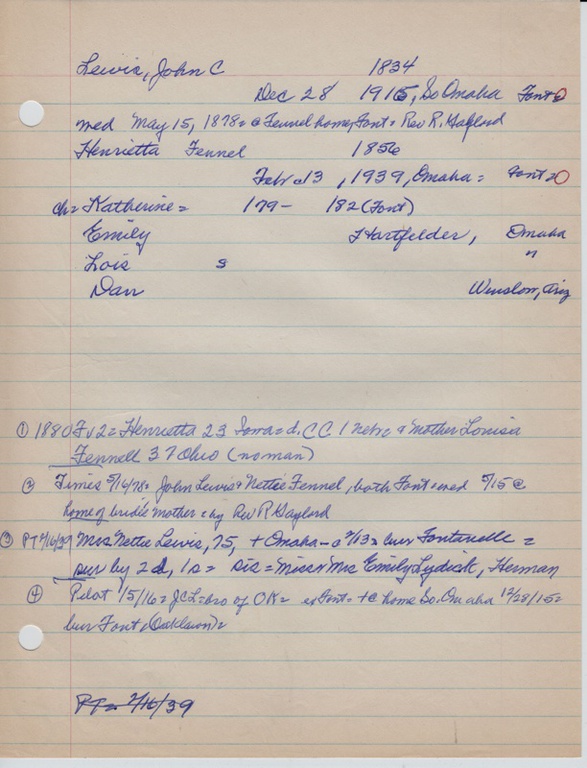 Lewis, John C 1834
Dec 28 1915, So Omaha Font=
med May 15, 1878= @ Fennel home, Font= Rev R. Gaylord
Henrietta Fennel 1856
Feb 13, 1939, Omaha= Font=
ch= Katherine= 179- 182 (Font)
Emily Hartfelder, Omaha
Lois s "
Dan Winslow, Ariz
① 1880 Henrietta 23 Iowa= d, CC 1 Nebr & Mother Louisa
Fennell 37 Ohio (no man)
② Times 5/14/78= John Lewis & Nettie Fennel, both Font= wed 5/15 @
home of bride's mother= by Rev R Gaylord
③ PT 2/16/39 Mrs Nettie Lewis, 75, + Omaha- 2/13= bur Fontanelle=
sur by 2d, 1s= sis= Mrs Emily Lydick, Herman
④ Pilot 1/5/16= JCL= bro of OK= Font= + @ home So. Omaha 12/28/15=
bur Font (Oaklawn)=
PT= 2/16/39